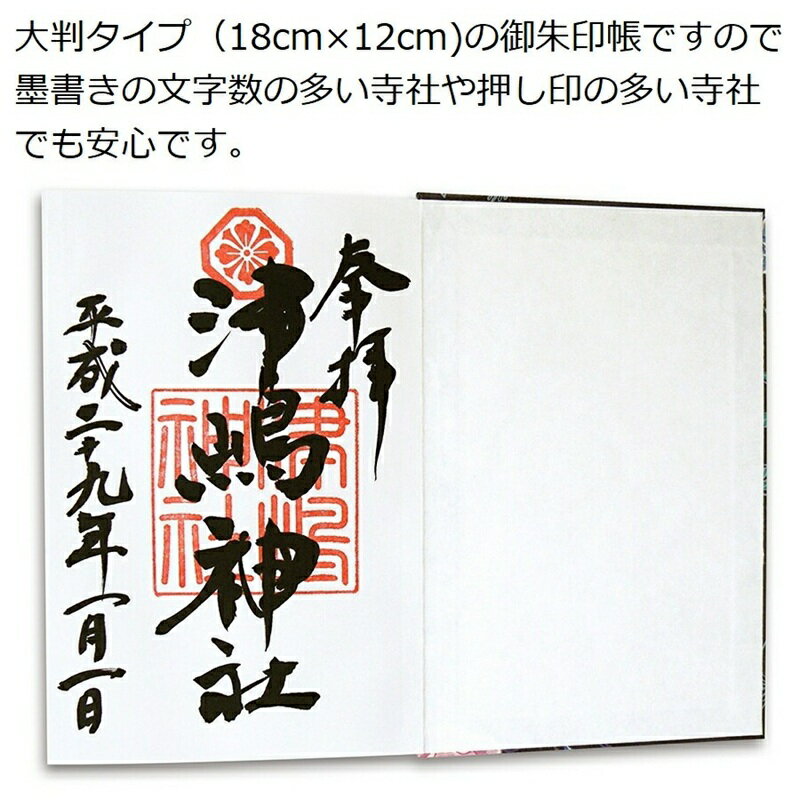 大判タイプ（18cm×12cm)の御朱印帳ですので
墨書きの文字数の多い寺社や押し印の多い寺社
でも安心です。
奉拝
津嶋神社
平成二十九年一月一日
津嶋
神社